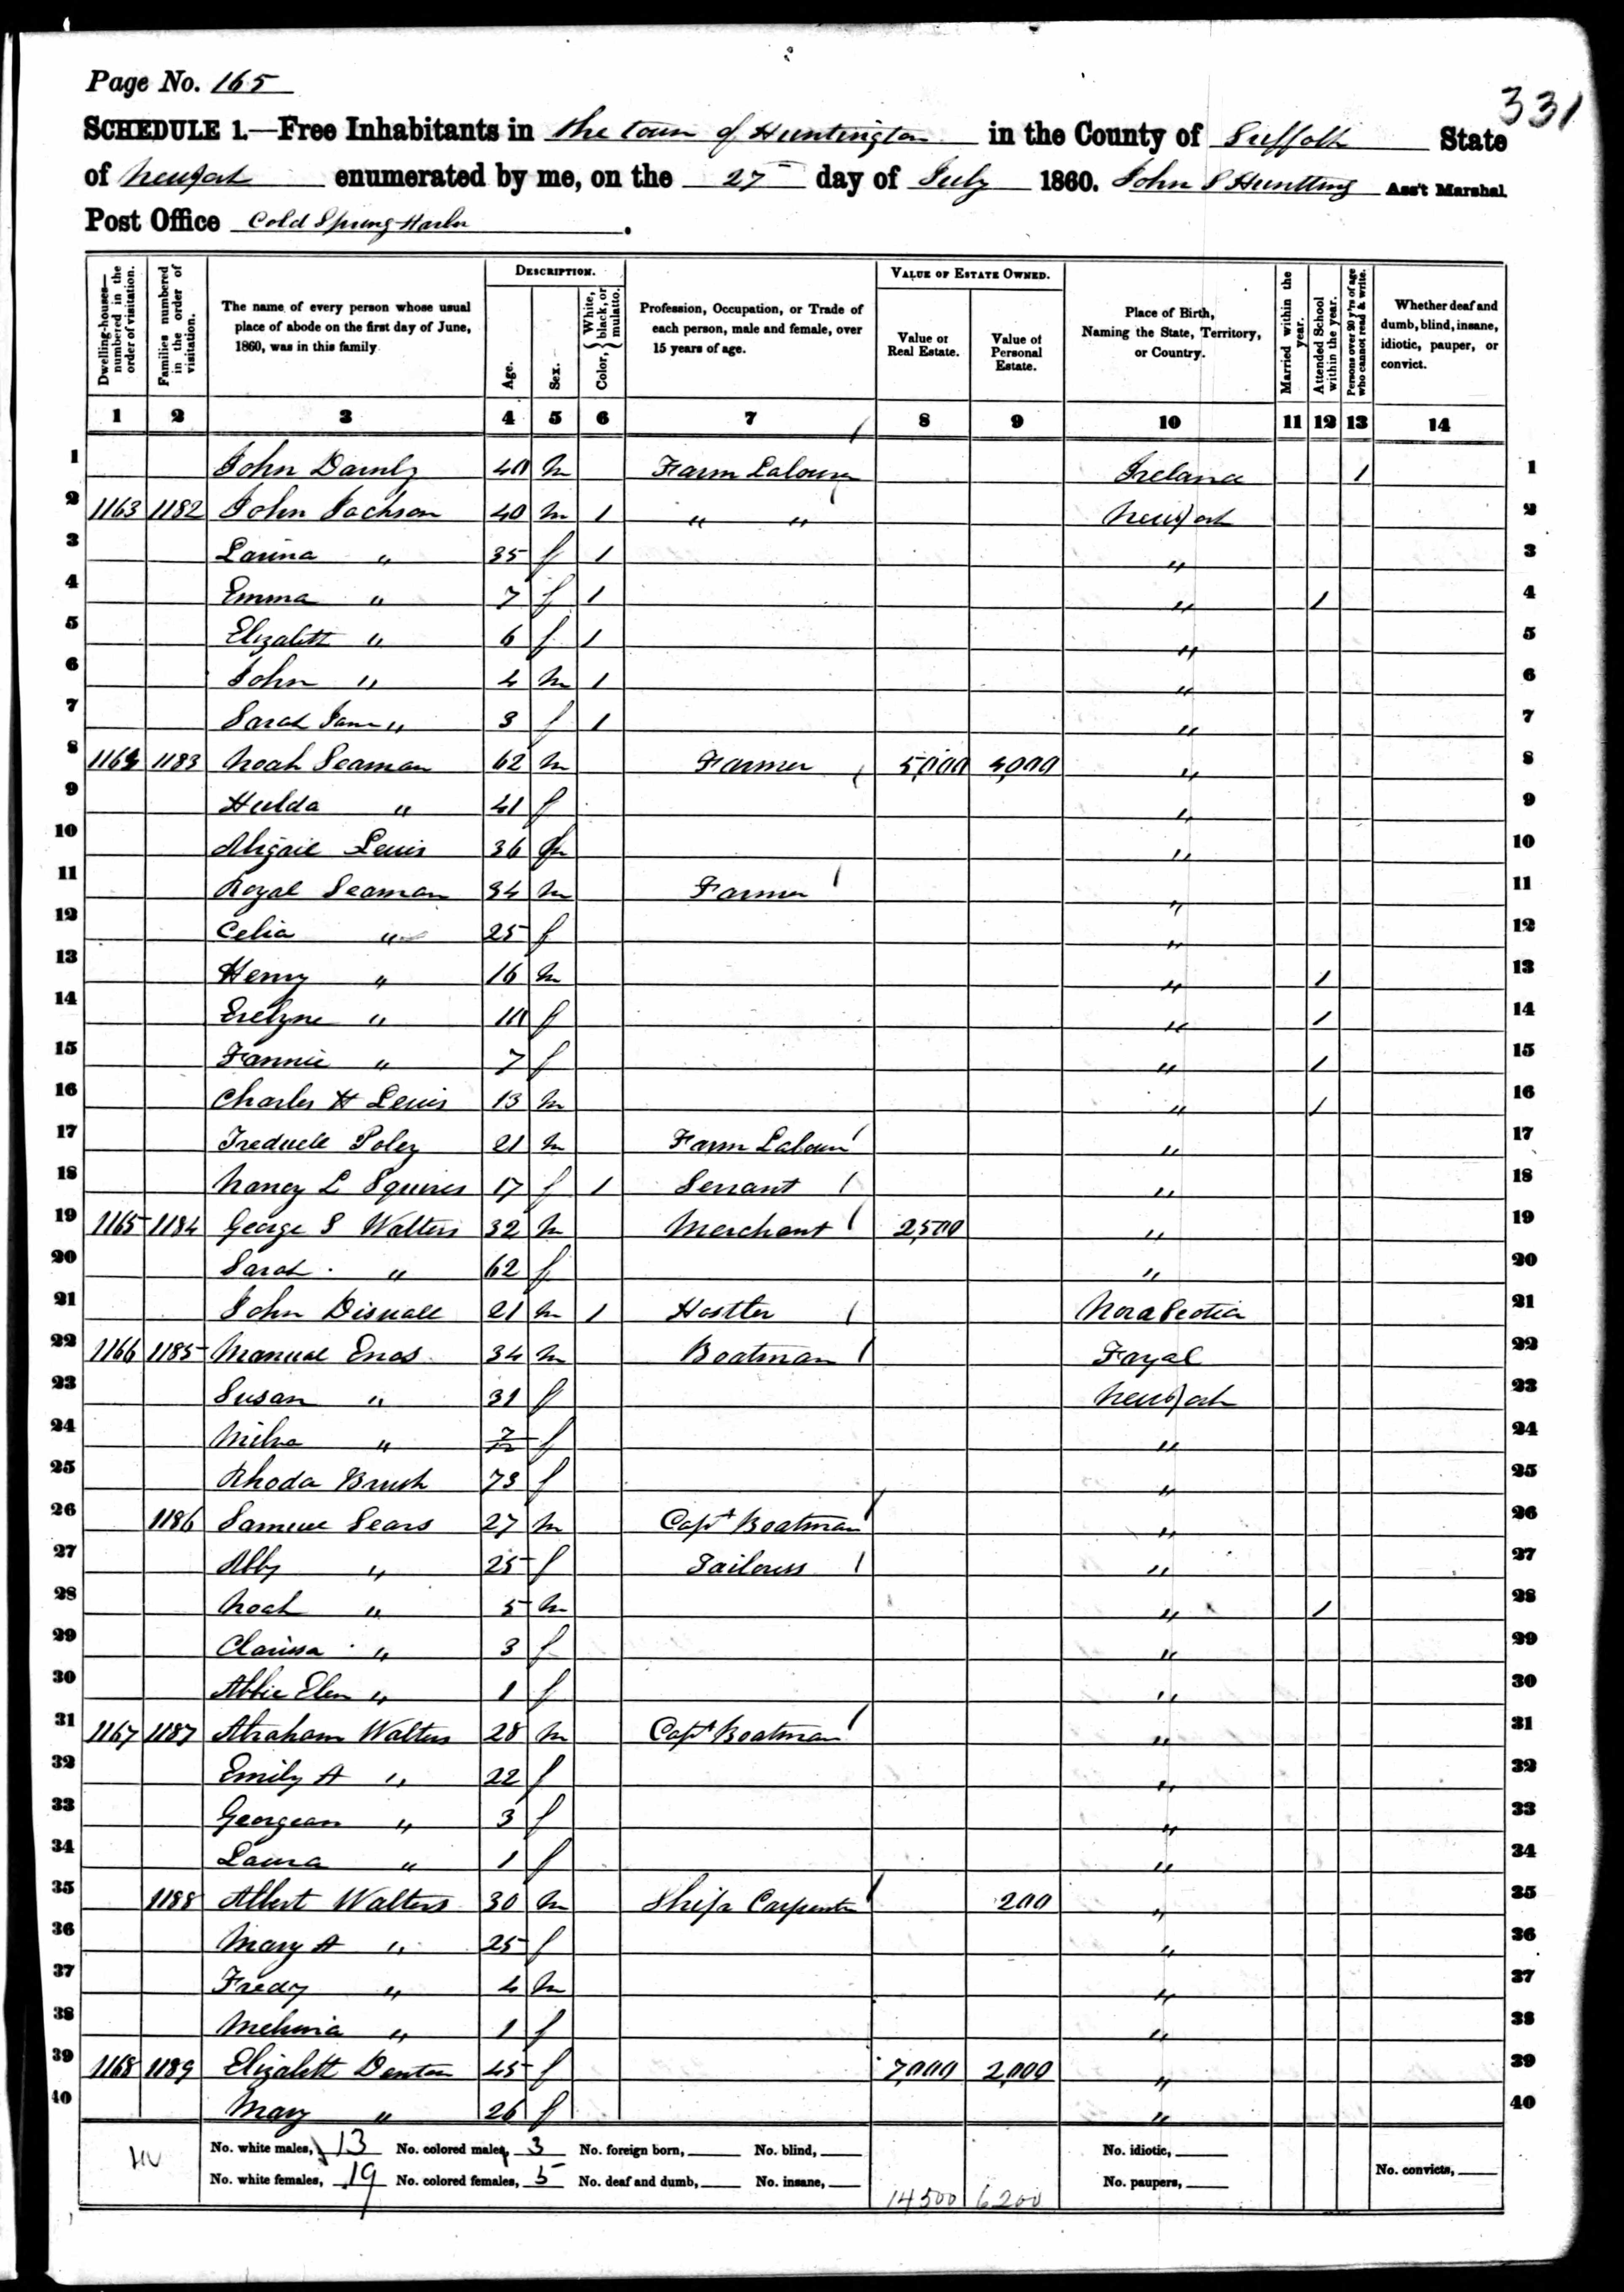 Page No. 165
331
SCHEDULE 1.—Free Inhabitants in the town of Huntington in the County of Suffolk State
of New York enumerated by me, on the 27 day of July 1860. John S Huntting Ass't Marshal.
Post Office Cold Spring Harbor.
Dwelling-houses—numbered in the order of visitation. Families numbered in the order of visitation. The name of every person whose usual place of abode on the first day of June, 1860, was in this family DESCRIPTION. Age. Sex. Color, {White, black, or mulatto. Profession, Occupation, or Trade of each person, male and female, over 15 years of age. VALUE OF ESTATE OWNED. Value of Real Estate. Value of Personal Estate. Place of Birth, Naming the State, Territory, or Country. Married within the year. Attended School within the year. Persons over 20 y'rs of age who cannot read & write. Whether deaf and dumb, blind, insane, idiotic, pauper, or convict.
1 2 3 4 5 6 7 8 9 10 11 12 13 14
1 John 40 m Farm Labourer Ireland 1 1
2 1163 1182 John Jackson 40 m 1 " " New York 2
3 " 35 f 1 " 3
4 Emma " 7 f 1 " 1 4
5 Elizabeth " 6 f 1 " 5
6 John " 4 m 1 " 6
7 Sarah Jane " 3 f 1 " 7
8 1164 1183 Noah Seaman 62 m Farmer 5,000 4,000 " 8
9 Hulda " 41 f " 9
10 Abigail Lewis 36 f " 10
11 Royal Seaman 34 m Farmer " 11
12 Celia " 25 f " 12
13 Henry " 16 m " 1 13
14 Evelyne " 10 f " 1 14
15 Fannie " 7 f " 1 15
16 Charles H Lewis 13 m " 1 16
17 Frederick 21 m Farm Labourer " 17
18 Nancy L Squires 17 f 1 Servant " 18
19 1165 1184 George S Walters 32 m Merchant 2,500 " 19
20 Sarah " 62 f " 20
21 John 21 m 1 Hostler Nova Scotia 21
22 1166 1185 Manuel Enos 34 m Boatman Fayal 22
23 Susan " 31 f New York 23
24 " 7/12 f " 24
25 Rhoda Brush 73 f " 25
26 1186 Samuel Sears 27 m Capt Boatman " 26
27 Abby " 25 f Tailoress " 27
28 Noah " 5 m " 1 28
29 Clarissa " 3 f " 29
30 Abbie Elen " 1 f " 30
31 1167 1187 Abraham Walters 28 m Capt Boatman " 31
32 Emily A " 22 f " 32
33 Georgean " 3 f " 33
34 Laura " 1 f " 34
35 1188 Albert Walters 30 m Ship Carpenter 200 " 35
36 Mary A " 25 f " 36
37 Fredy " 4 m " 37
38 " 1 f " 38
39 1168 1189 Elizabeth Denton 45 f 7,000 2,000 " 39
40 Mary " 26 f " 40
No. white males, 13 No. colored males, 3 No. foreign born, No. blind, No. idiotic,
No. white females, 19 No. colored females, 5 No. deaf and dumb, No. insane, 14500 6200 No. paupers, No. convicts,